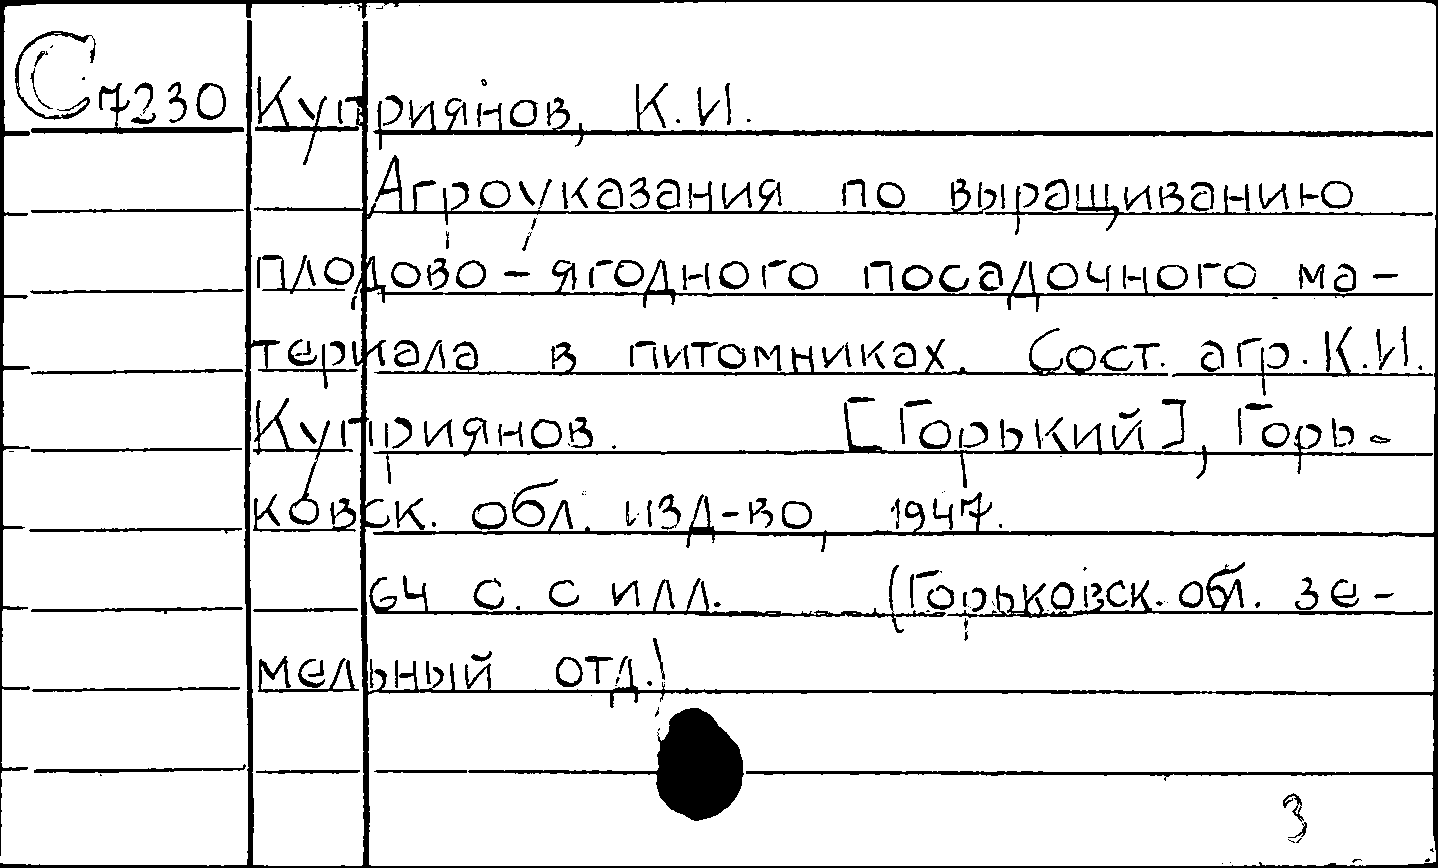 С7230 Куприянов, К.И.
Агроуказания по выращиванию
плодово-ягодного посадочного ма-
териала в питомниках. Сост. агр. К.И.
Куприянов. [Горький], Горь-
ковск. обл. изд-во, 1947.
64 с. с илл. (Горьковск. обл. зе-
мельный отд.)
3